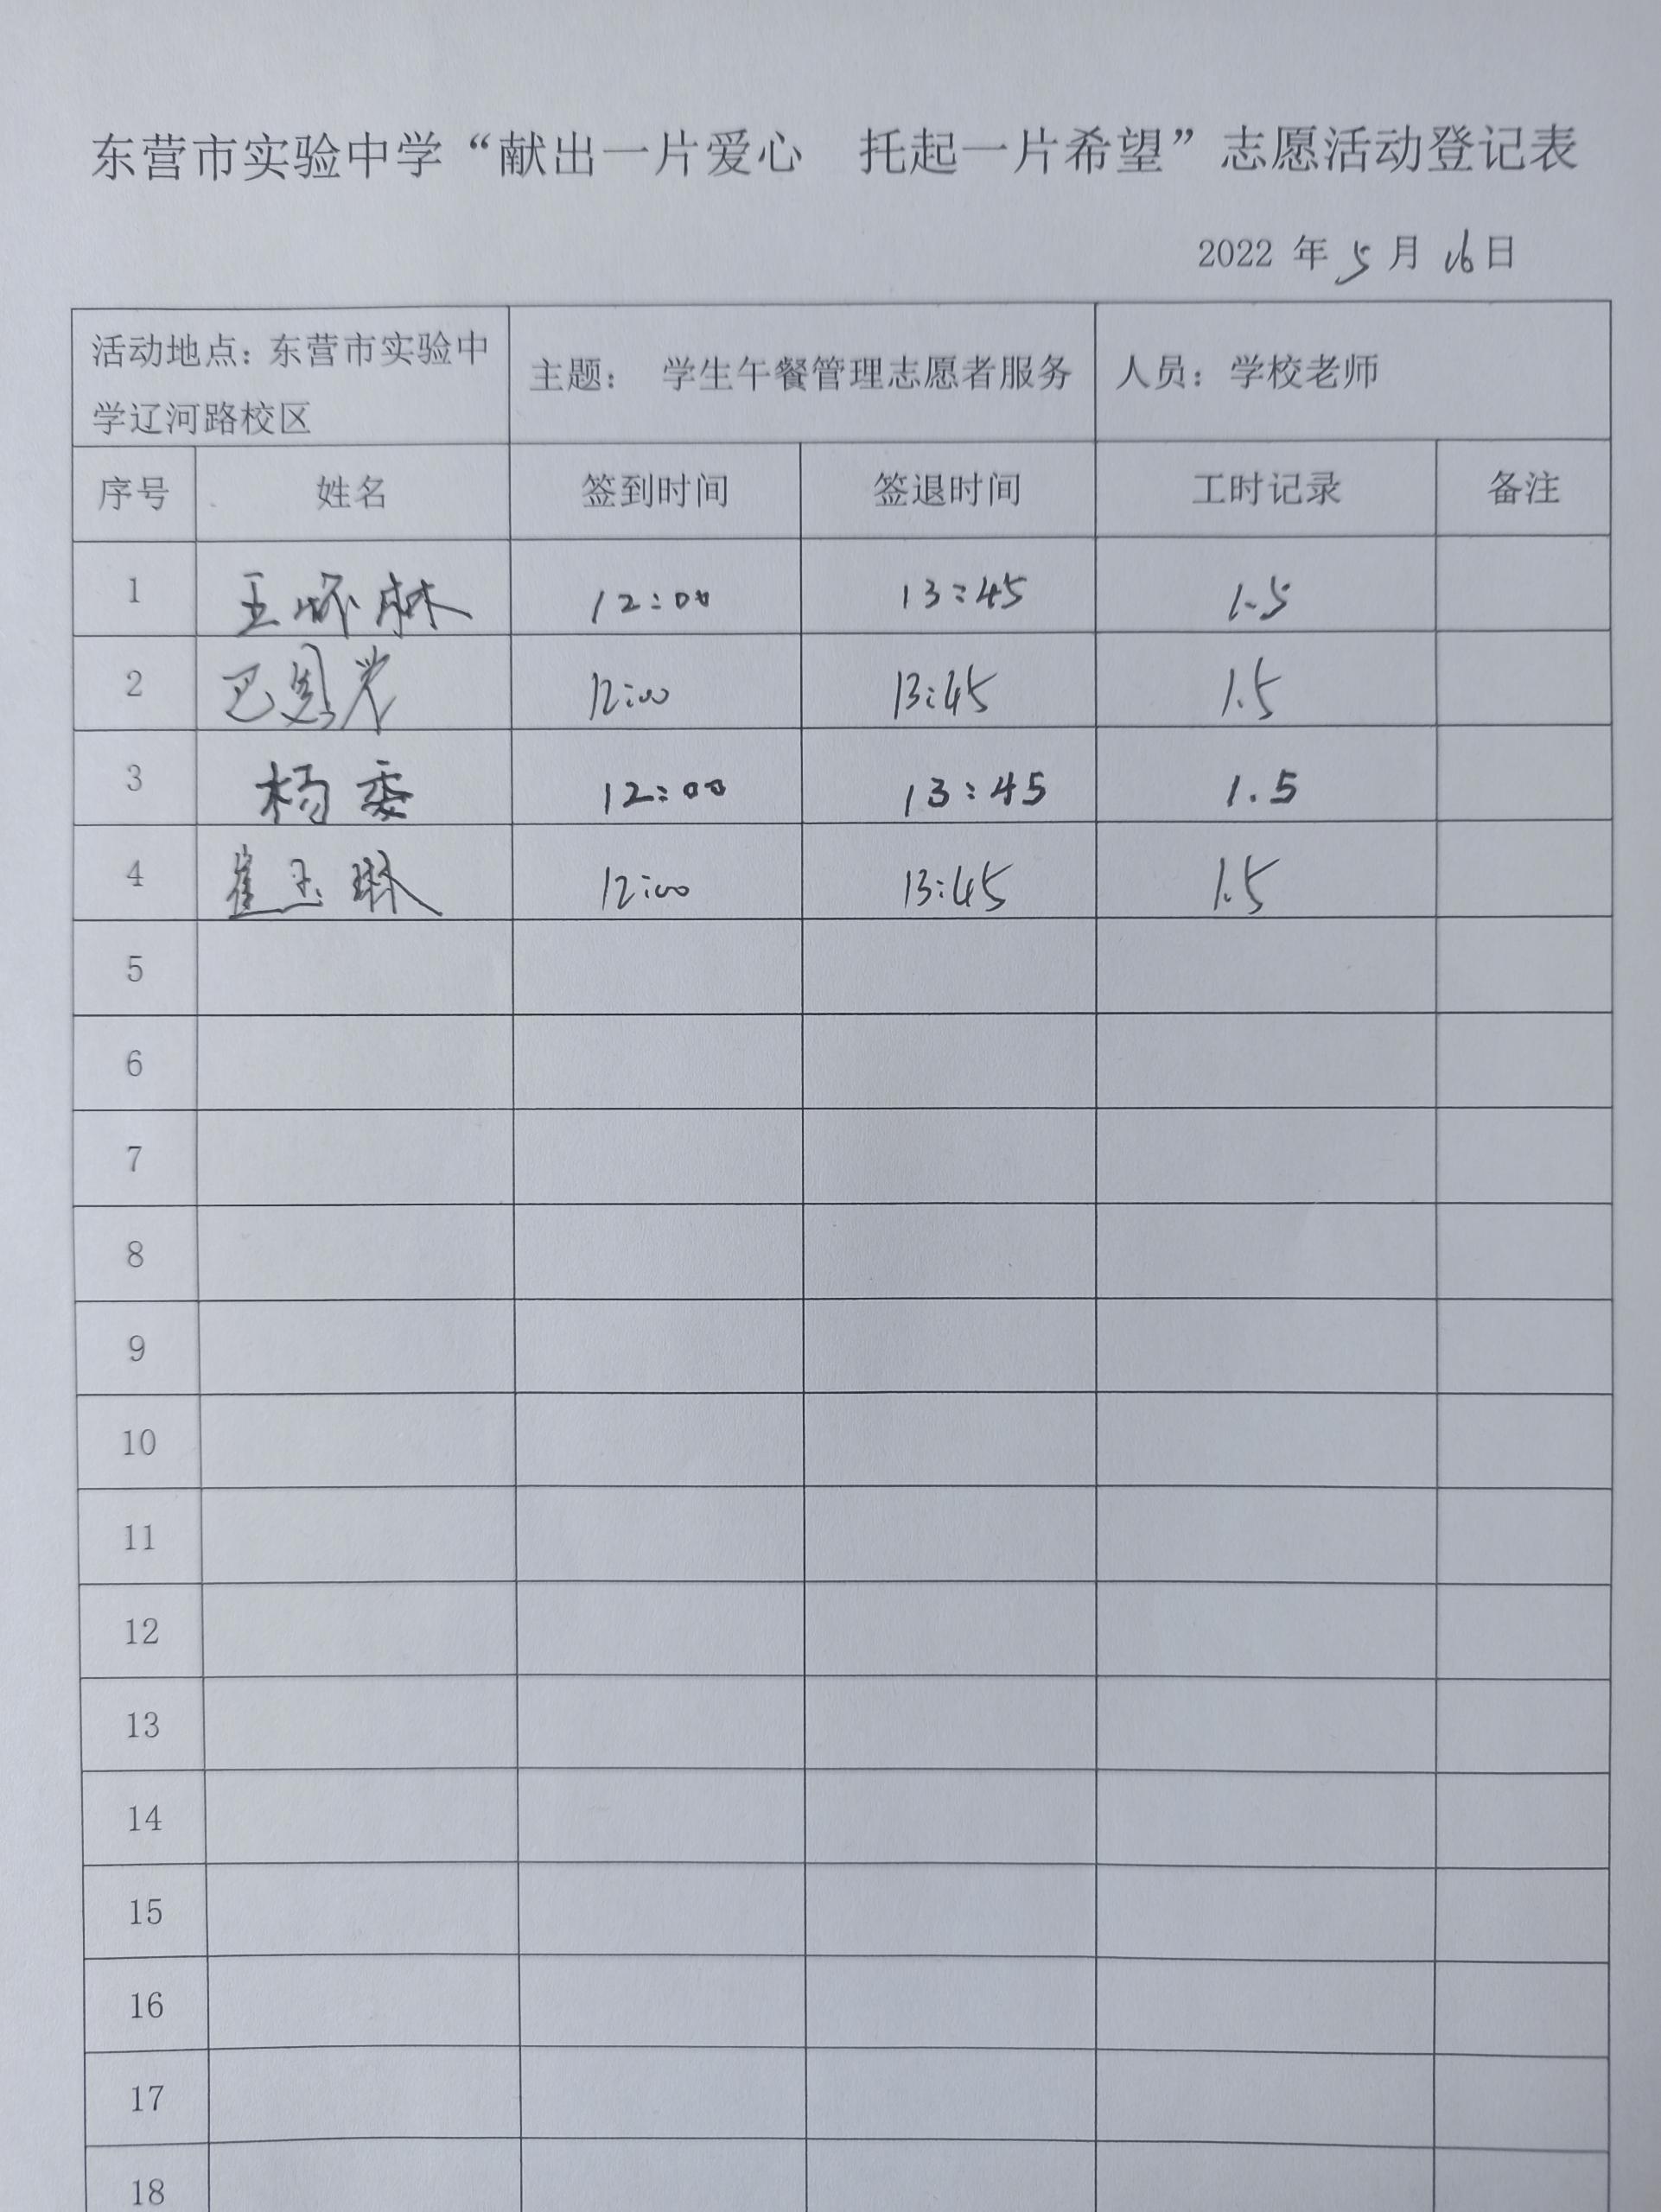 东营市实验中学“献出一片爱心 托起一片希望”志愿活动登记表
2022 年 5 月 16 日
活动地点：东营市实验中
学辽河路校区
主题： 学生午餐管理志愿者服务
人员：学校老师
序号 姓名 签到时间 签退时间 工时记录 备注
1 王怀林 12:00 13:45 1.5
2 巴 12:00 13:45 1.5
3 杨委 12:00 13:45 1.5
4 崔玉琳 12:00 13:45 1.5
5
6
7
8
9
10
11
12
13
14
15
16
17
18